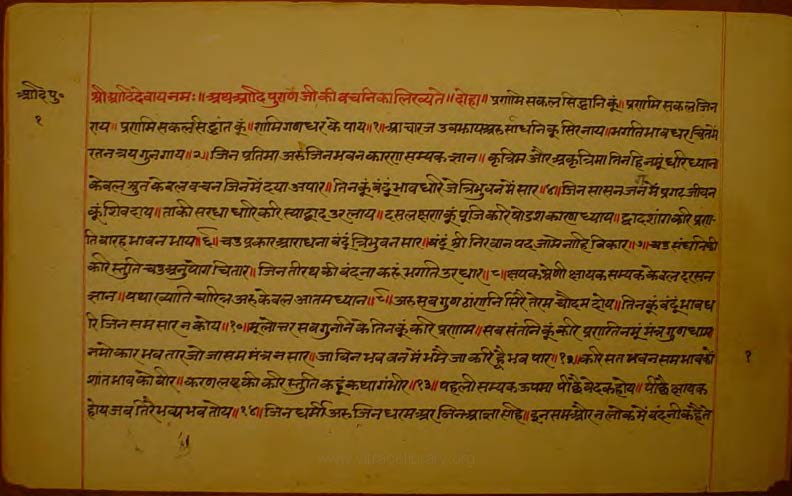 आदिपु॰
१
श्रीआदिदेवायनमः॥अथआदिपुराणजीकीवचनिकालिख्यते॥दोहा॥प्रणमिसकलसिद्धानिकूं॥प्रणमिसकलजिन
राय॥प्रणमिसकलसिद्धांतकूं॥णमिगणधरकेपाय॥१॥आचारजउवझायअरुसाधनिकूसिरनाय॥भगतिभावधरचितमें
रतनत्रयगुनगाय॥२॥जिनप्रतिमाअरुजिनभवनकारणसम्यकज्ञान॥कृत्रिमऔरअकृत्रिमातिनहिनमूंधरिध्यान
केवलश्रुतकेवलवचनजिनमेंदयाअपार॥तिनकूंबंदूंभावधरिजेत्रिभुवनमेंसार॥४॥जिनसासनजनमेंप्रगटजीवन
कूंशिवदाय॥ताकीसरधाधारिकरिस्याद्वादउरलाय॥दसलक्षणकूंपूजिकरिषोडशकारणध्याय॥द्वादशांगकरिप्रण
तिबारहभावनभाय॥६॥चउप्रकारआराधनाबंदूंत्रिभुवनसार॥बंदूंश्रीनिरवानपदजामेनाहिबिकार॥७॥चउसंघनिकी
करिस्तुतिचउअनुयोगचितार॥जिनतीरथकीबंदनाकरूंभगतिउरधार॥८॥क्षपकश्रेणीक्षायकसम्यककेवलदरसन
ज्ञान॥यथाख्यातिचारित्रअरुकेवलआतमध्यान॥९॥अरुसबगुणठांणानिसिरैतेरमचौदमदोय॥तिनकूंबंदूंभावध
रिजिनसमसारनकोय॥१०॥मूलोत्तरसबगुननिकेतिनकूंकरिप्रणाम॥सबसंतनिकूंकरिप्रणतिनमूंमंत्रगुणधाम
नमोकारभवतारजोजासममंत्रनसार॥जाबिनभवबनमेंभमैंजाकरिह्वैभवपार॥१२॥करिसतभवनसमभावको
शांतभावकोबीर॥करणलब्धकीकरिस्तुतिकहूंकथागंभीर॥१३॥पहलीसम्यकऊपमापीछैवेदकहोय॥पीछैक्षायक
होयजबतिरैभव्यभवतोय॥१४॥जिनधर्मीअरुजिनधरमअरजिनआज्ञासोहि॥इनसमऔरनलोकमेंबंदनीकहैंत
१
www.vitraglibrary.org